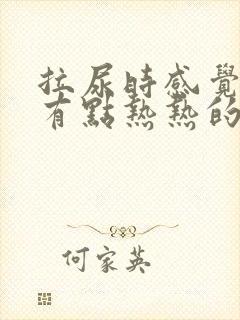 拉尿時感覺
有點熱熱的
何家英